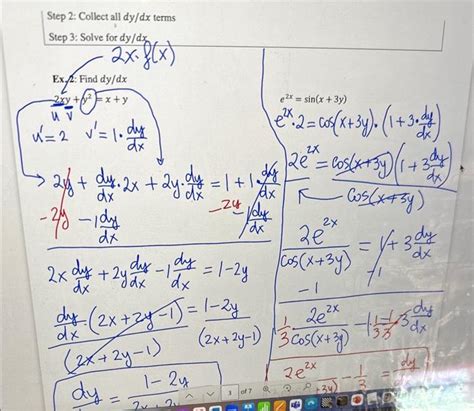 Step 2: Collect all dy/dx terms
Step 3: Solve for dy/dx
2x·f(x)
Ex. 2: Find dy/dx
2xy + y² = x + y
u v
u' = 2 v' = 1·dy/dx
2y + dy/dx·2x + 2y·dy/dx = 1 + 1·dy/dx
-2y -1dy/dx -2y -1dy/dx
2x dy/dx + 2y dy/dx - 1 dy/dx = 1-2y
dy/dx (2x+2y-1) = 1-2y
(2x+2y-1) (2x+2y-1)
dy/dx = 1-2y
e^2x = sin(x + 3y)
e^2x·2 = cos(x+3y)·(1+3·dy/dx)
2e^2x = cos(x+3y)(1+3dy/dx)
cos(x+3y)
2e^2x/cos(x+3y) = 1+3dy/dx
-1 -1
1/3 2e^2x/cos(x+3y)
2e^2x - 1/3 = dy
3 of 7